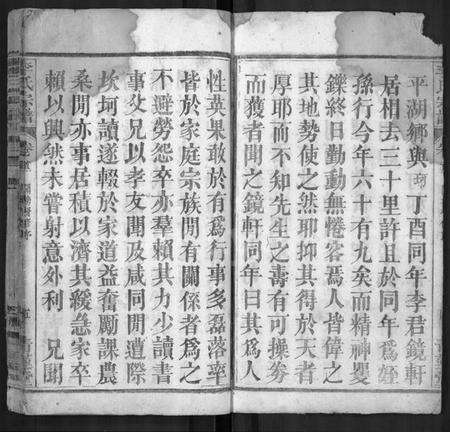 平湖鄉與 丁酉同年李君鏡軒
居相去三十里許且於同年爲姪
孫行今年六十有九矣而精神矍
鑠終日勤動無惓容焉人皆偉之
其地勢使之然耶抑其得於天者
厚耶而不知先生之壽有可操券
而獲者聞之鏡軒同年曰其爲人
性英果敢於有爲行事多磊落率
皆於家庭宗族閒有關係者爲之
不避勞怨卒亦羣賴其力少讀書
事父兄以孝友聞及咸同閒遭際
坎坷讀遂輟於家道益奮勵課農
桑閒亦事居積以濟其緩急家卒
賴以興然未嘗射意外利 兄聞
李氏宗譜